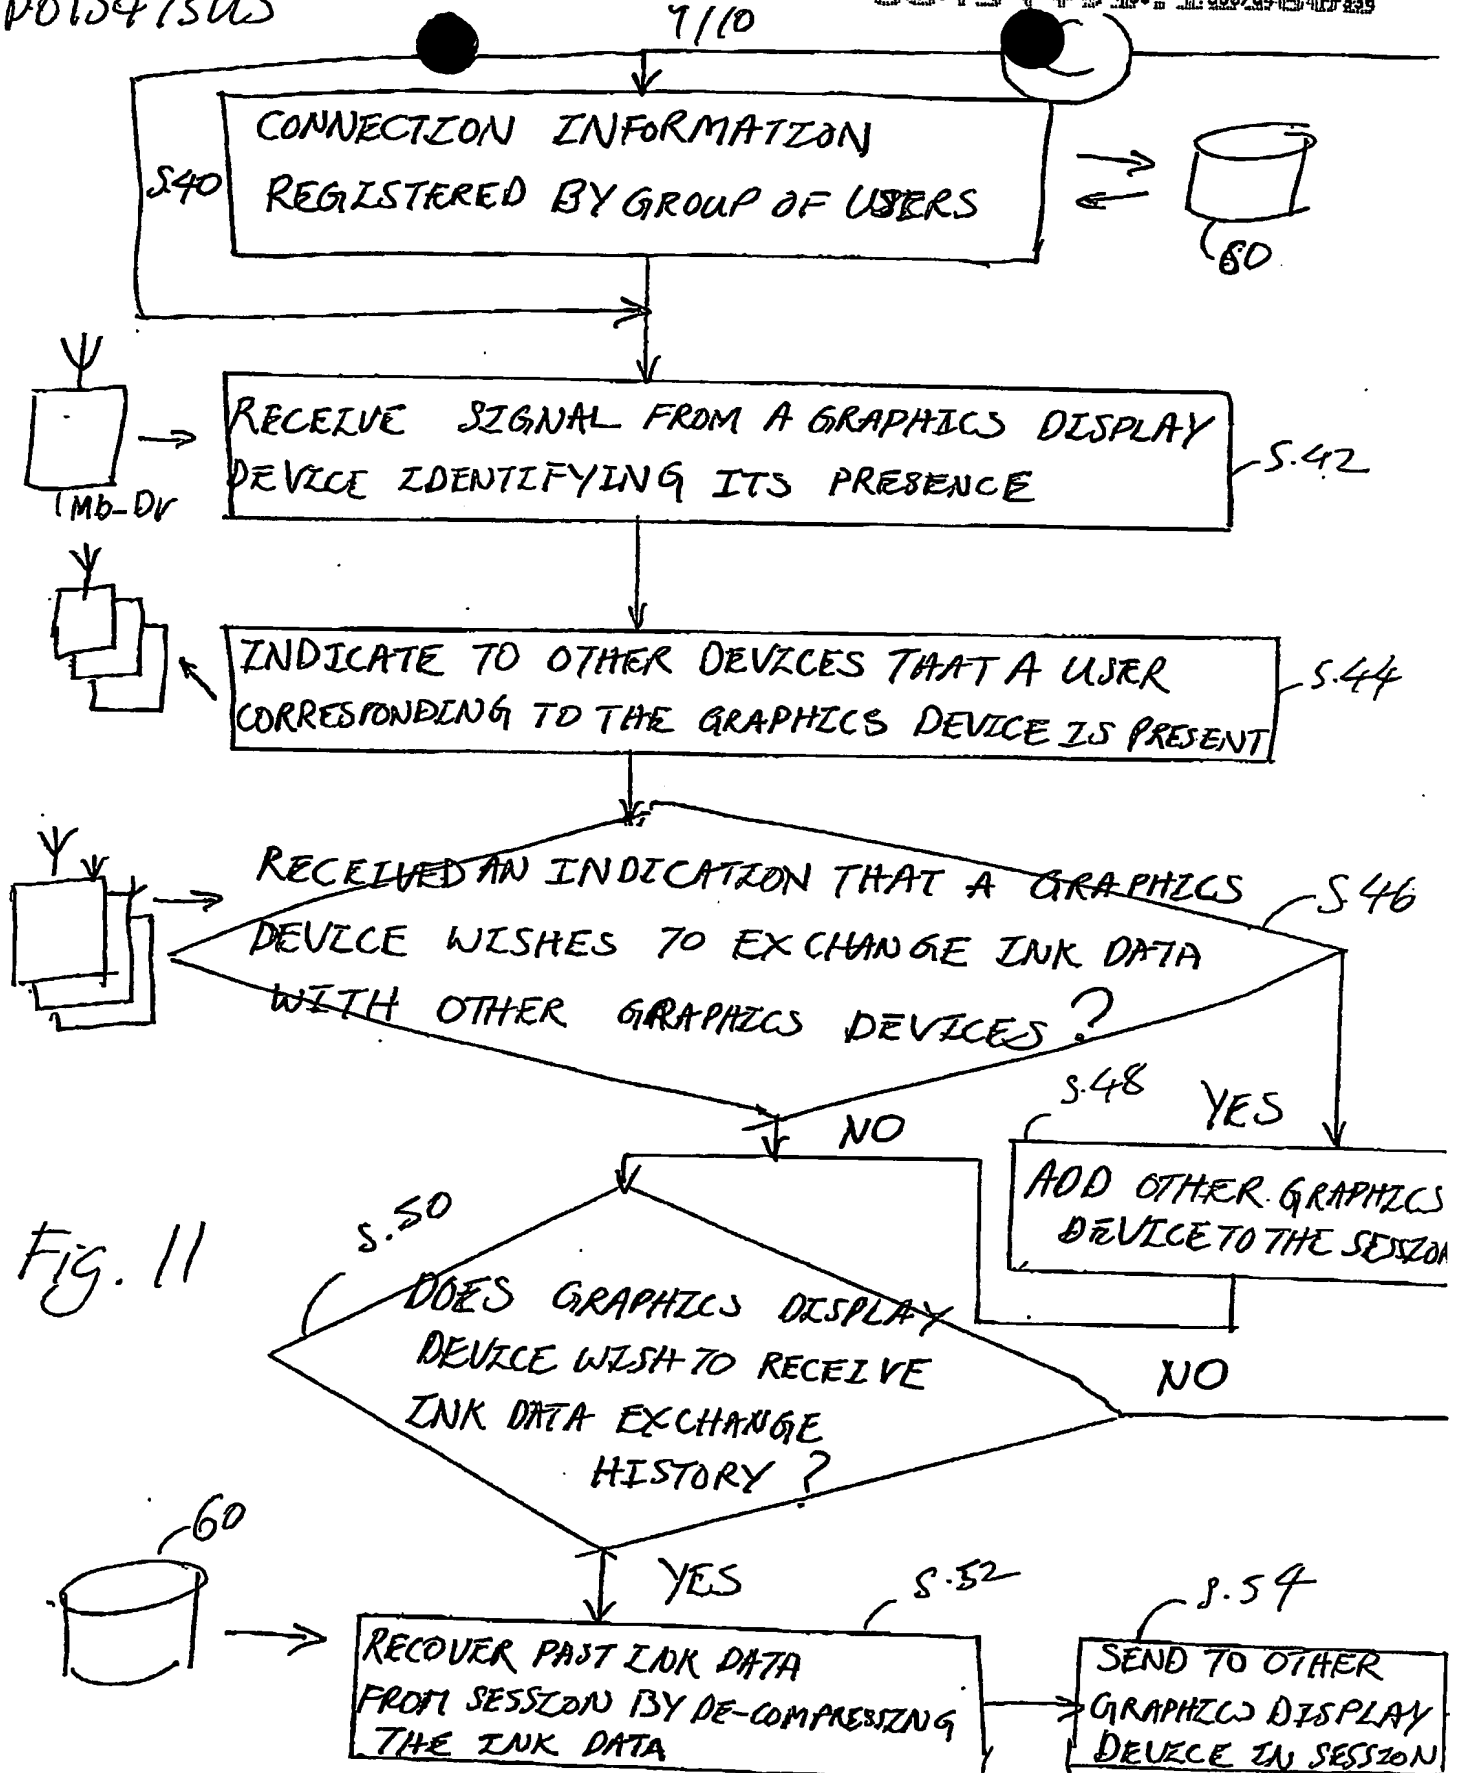 9/10
CONNECTION INFORMATION
REGISTERED BY GROUP OF USERS
S.40
60
RECEIVE SIGNAL FROM A GRAPHICS DISPLAY
DEVICE IDENTIFYING ITS PRESENCE
S.42
Mb-Dv
INDICATE TO OTHER DEVICES THAT A USER
CORRESPONDING TO THE GRAPHICS DEVICE IS PRESENT
S.44
RECEIVED AN INDICATION THAT A GRAPHICS
DEVICE WISHES TO EXCHANGE INK DATA
WITH OTHER GRAPHICS DEVICES?
S.46
NO
S.48
YES
ADD OTHER GRAPHICS
DEVICE TO THE SESSION
Fig. 11
S.50
DOES GRAPHICS DISPLAY
DEVICE WISH TO RECEIVE
INK DATA EXCHANGE
HISTORY?
NO
60
YES
S.52
S.54
RECOVER PAST INK DATA
FROM SESSION BY DE-COMPRESSING
THE INK DATA
SEND TO OTHER
GRAPHICS DISPLAY
DEVICE IN SESSION